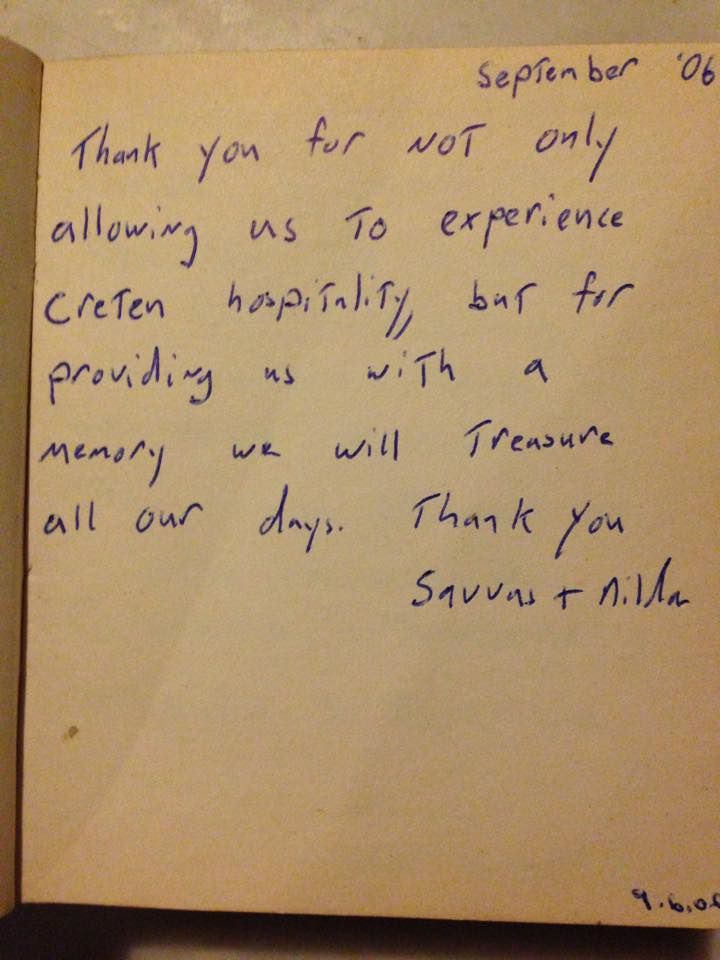 September '06
Thank you for NOT only
allowing us to experience
Creten hospitality, but for
providing us with a
memory we will Treasure
all our days. Thank you
Savvas + Nilda
9.6.06